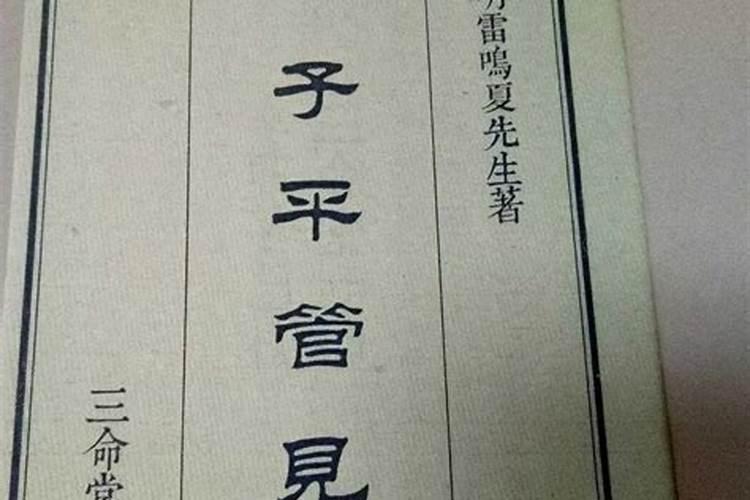 明雷鳴夏先生著
子平管見
三命堂